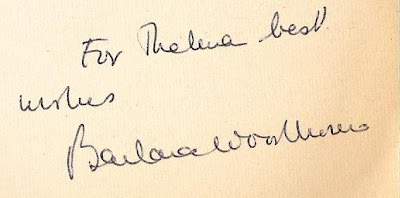 For Thelma best
wishes
Barbara Woodhouse